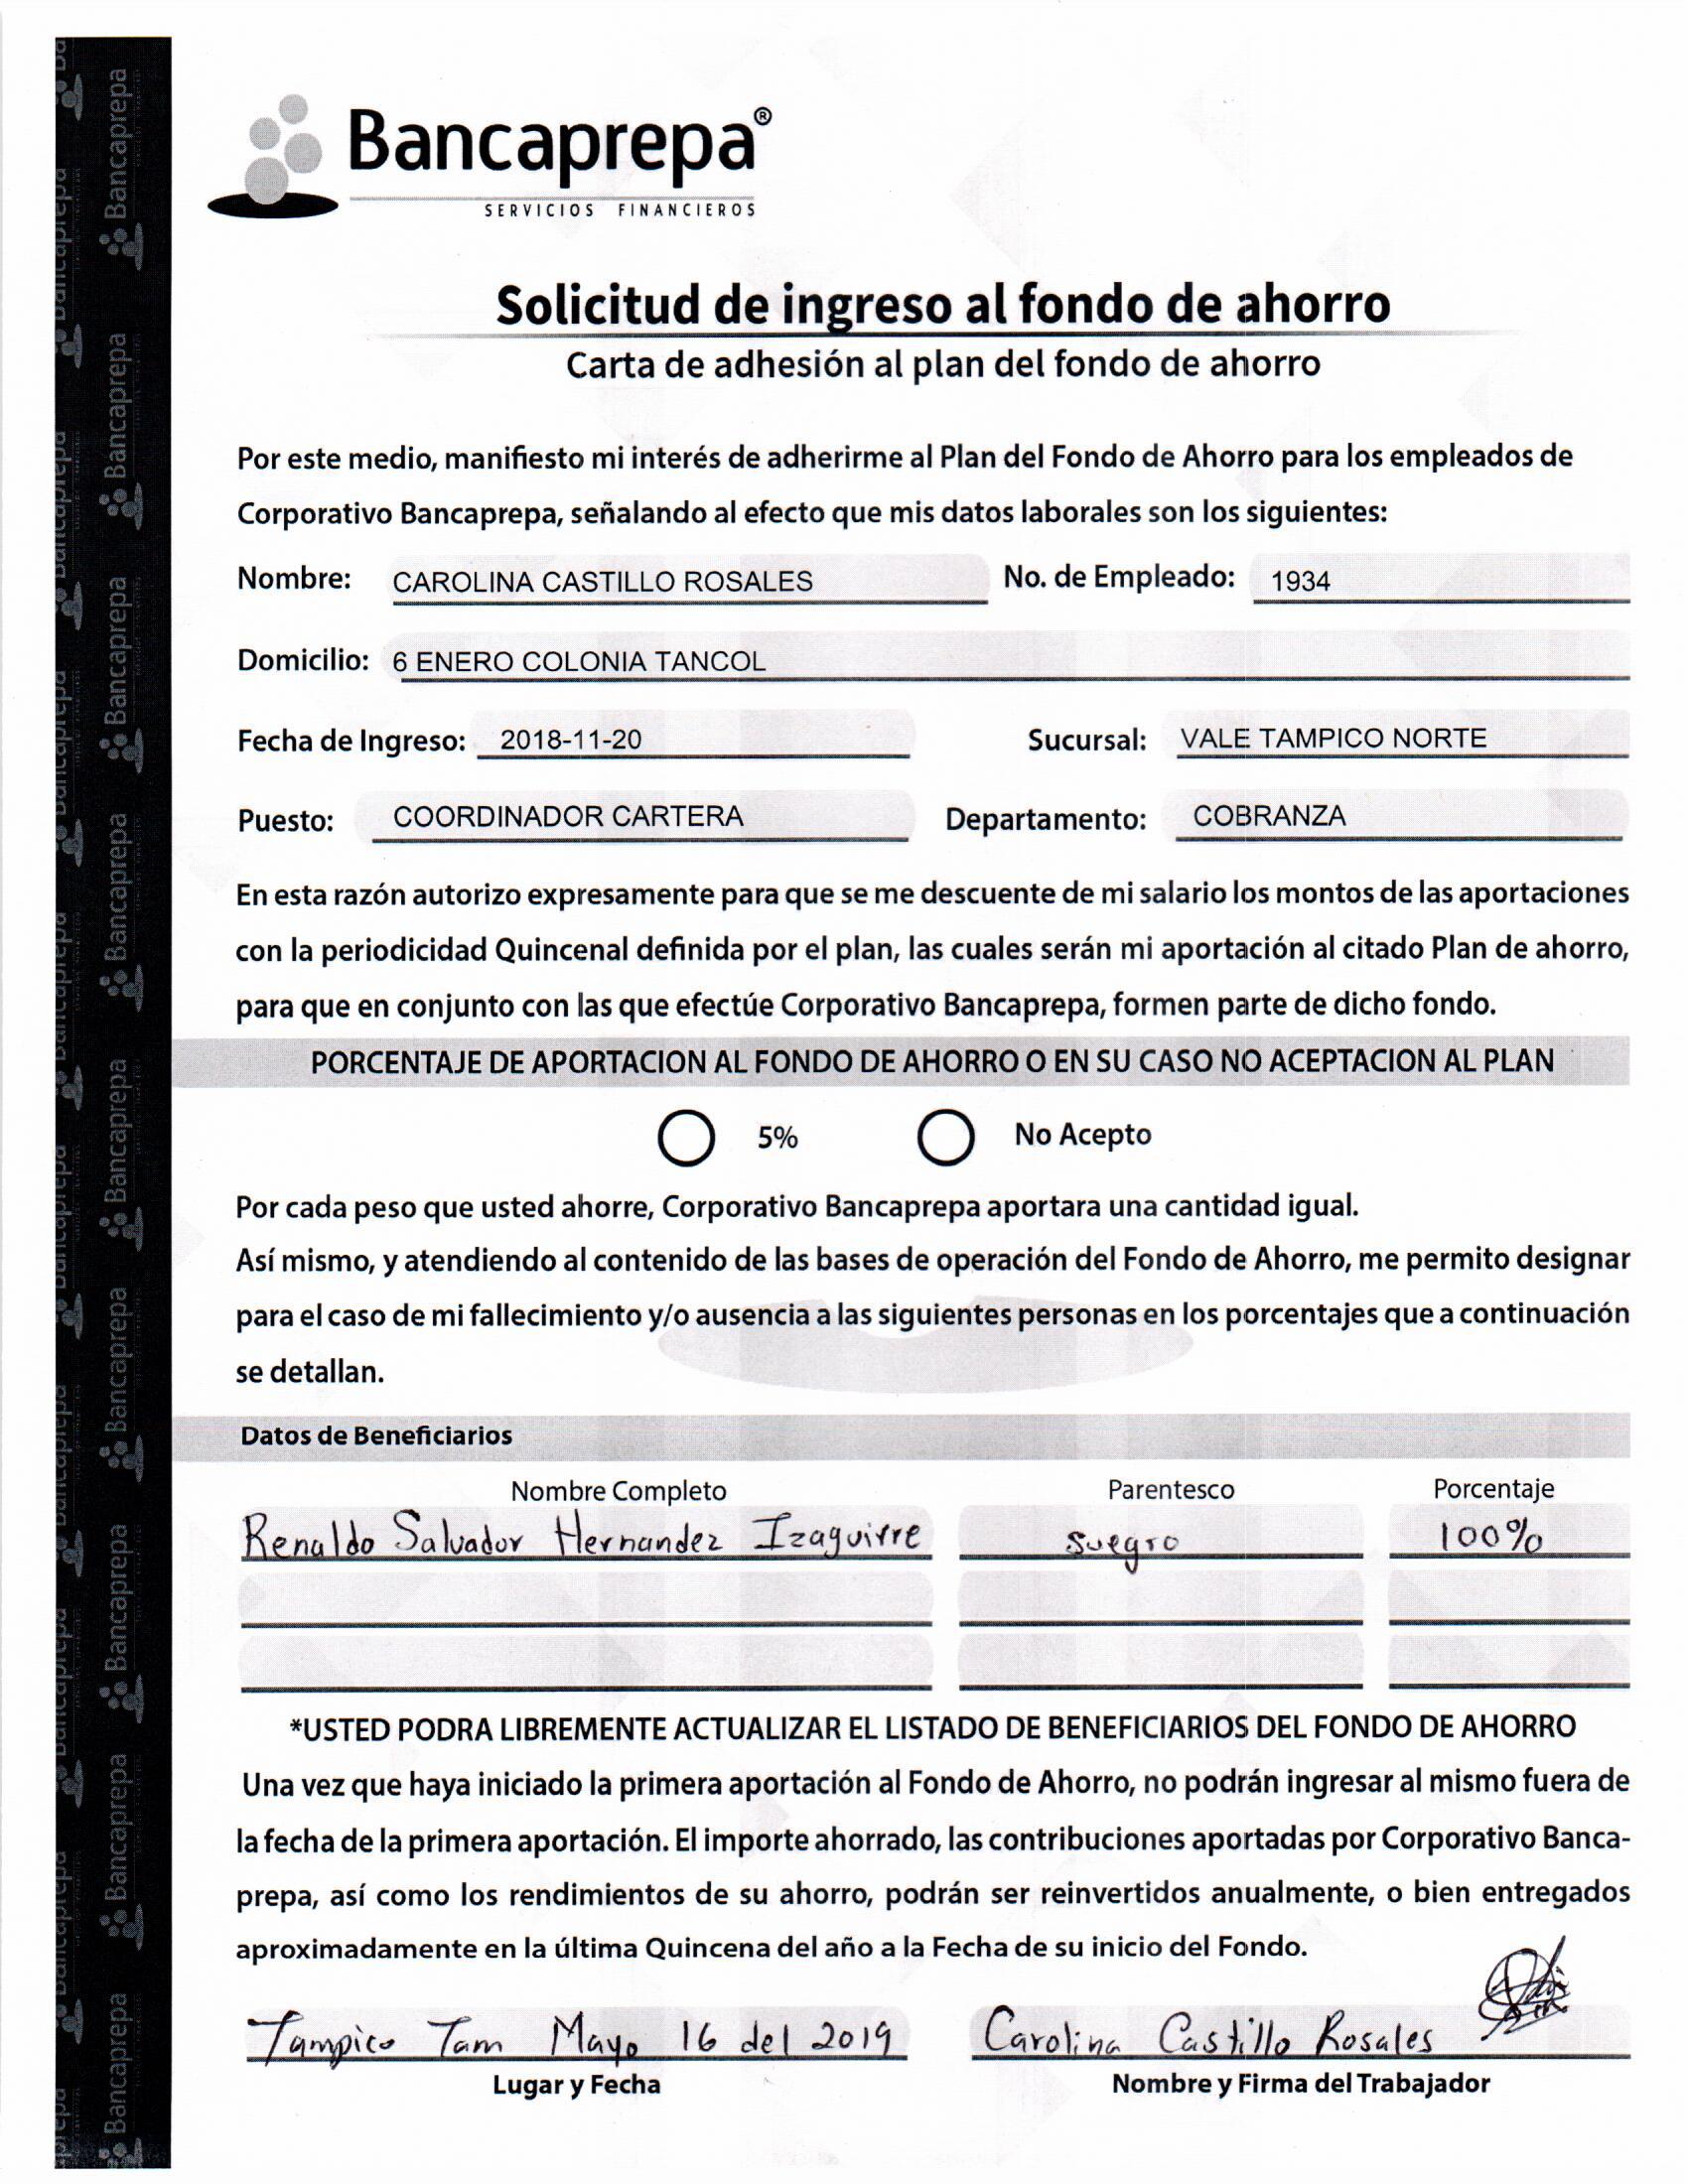 Bancaprepa®
SERVICIOS FINANCIEROS
Solicitud de ingreso al fondo de ahorro
Carta de adhesión al plan del fondo de ahorro
Por este medio, manifiesto mi interés de adherirme al Plan del Fondo de Ahorro para los empleados de
Corporativo Bancaprepa, señalando al efecto que mis datos laborales son los siguientes:
Nombre: CAROLINA CASTILLO ROSALES No. de Empleado: 1934
Domicilio: 6 ENERO COLONIA TANCOL
Fecha de Ingreso: 2018-11-20 Sucursal: VALE TAMPICO NORTE
Puesto: COORDINADOR CARTERA Departamento: COBRANZA
En esta razón autorizo expresamente para que se me descuente de mi salario los montos de las aportaciones
con la periodicidad Quincenal definida por el plan, las cuales serán mi aportación al citado Plan de ahorro,
para que en conjunto con las que efectúe Corporativo Bancaprepa, formen parte de dicho fondo.
PORCENTAJE DE APORTACION AL FONDO DE AHORRO O EN SU CASO NO ACEPTACION AL PLAN
5% No Acepto
Por cada peso que usted ahorre, Corporativo Bancaprepa aportara una cantidad igual.
Así mismo, y atendiendo al contenido de las bases de operación del Fondo de Ahorro, me permito designar
para el caso de mi fallecimiento y/o ausencia a las siguientes personas en los porcentajes que a continuación
se detallan.
Datos de Beneficiarios
Nombre Completo Parentesco Porcentaje
Renaldo Salvador Hernandez Izaguirre Suegro 100%
*USTED PODRA LIBREMENTE ACTUALIZAR EL LISTADO DE BENEFICIARIOS DEL FONDO DE AHORRO
Una vez que haya iniciado la primera aportación al Fondo de Ahorro, no podrán ingresar al mismo fuera de
la fecha de la primera aportación. El importe ahorrado, las contribuciones aportadas por Corporativo Banca-
prepa, así como los rendimientos de su ahorro, podrán ser reinvertidos anualmente, o bien entregados
aproximadamente en la última Quincena del año a la Fecha de su inicio del Fondo.
Tampico Tam Mayo 16 del 2019 Carolina Castillo Rosales
Lugar y Fecha Nombre y Firma del Trabajador